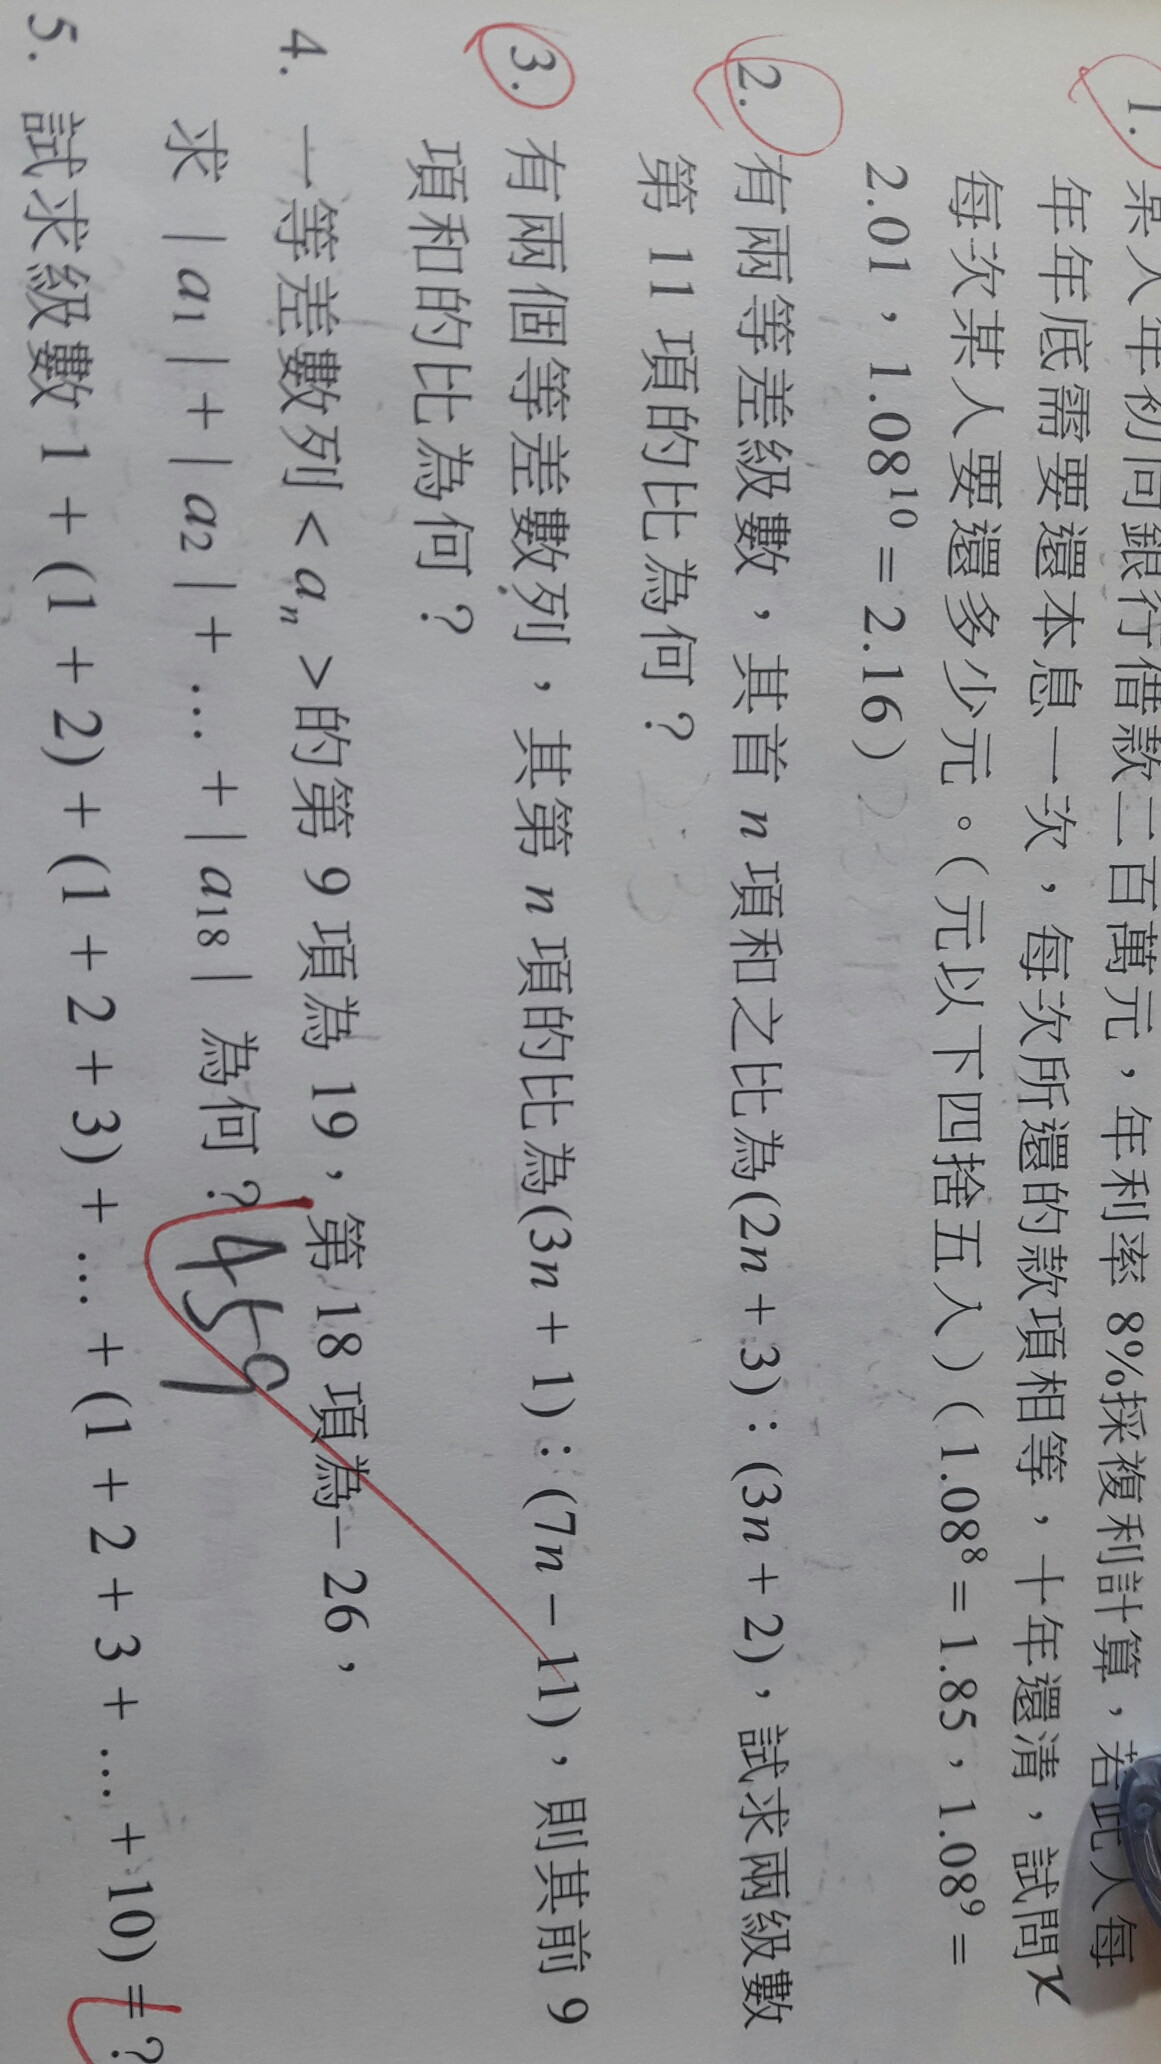 1. 某人年初向銀行借款二百萬元，年利率 8%採複利計算，若此人每
年年底需要還本息一次，每次所還的款項相等，十年還清，試問
每次某人要還多少元。（元以下四捨五入）（1.08⁸ = 1.85，1.08⁹ =
2.01，1.08¹⁰ = 2.16）
2. 有兩等差級數，其首 n 項和之比為(2n + 3)：(3n + 2)，試求兩級數
第 11 項的比為何？
3. 有兩個等差數列，其第 n 項的比為(3n + 1)：(7n − 11)，則其前 9
項和的比為何？
4. 一等差數列< aₙ >的第 9 項為 19，第 18 項為− 26，
求 | a₁ | + | a₂ | + … + | a₁₈ | 為何？ 459
5. 試求級數 1 + (1 + 2) + (1 + 2 + 3) + … + (1 + 2 + 3 + … + 10) = ?